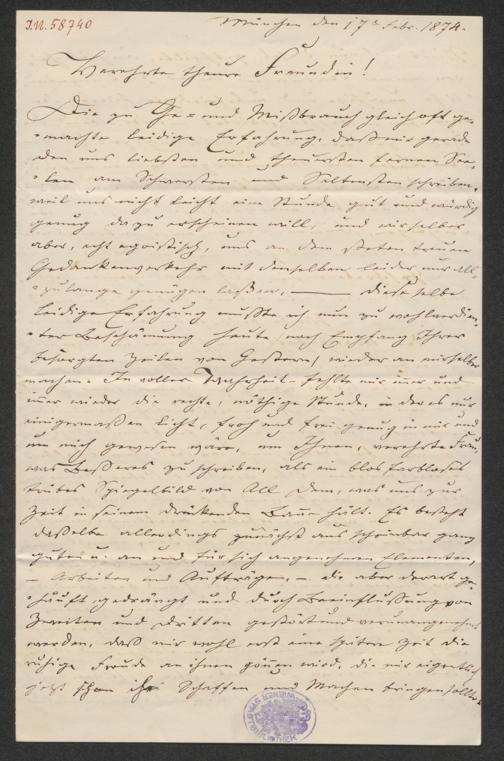 I.N. 58740
München den 17t Febr. 1874.
Verehrte theure Freundin!
Die zu Ge- und Mißbrauch gleich oft ge-
-machte leidige Erfahrung, daß wir gerade
den uns liebsten und theuersten fernen See-
-len am Schwersten und Seltensten schreiben,
weil uns nicht leicht eine Stunde gut und würdig
genug dazu erscheinen will, und wir selber
aber, echt egoistisch, uns an dem steten treuen
Gedankenverkehr mit denselben leider nur all-
-zulange genügen laßen, — diese selbe
leidige Erfahrung mußte ich nun zu wohlverdien-
-ter Beschämung heute, nach Empfang Ihrer
besorgten Zeilen von Gestern, wieder an mir selber
machen. In voller Wahrheit - fehlte mir immer und
immer wieder die rechte, nöthige Stunde, in der es nur
einigermaßen licht, froh und frei genug in mir und
um mich gewesen wäre, um Ihnen, verehrte Frau,
was Beßeres zu schreiben, als ein blos farbloses
trübes Spiegelbild von All dem, was uns zur
Zeit in seinem drückenden Banne hält. Es besteht
daßelbe allerdings zunächst aus scheinbar ganz
guten u. an und für sich angenehmen Elementen,
- Arbeiten und Aufträgen, - die aber derart ge-
-häuft, gedrängt und durch Beeinflußung von
Zweiten und Dritten gestört und verunangenehmt
werden, daß mir wohl erst eine spätere Zeit die
ruhige Freude an ihnen gönnen wird, die mir eigentlich
jetzt schon ihr Schaffen und Machen bringen sollte